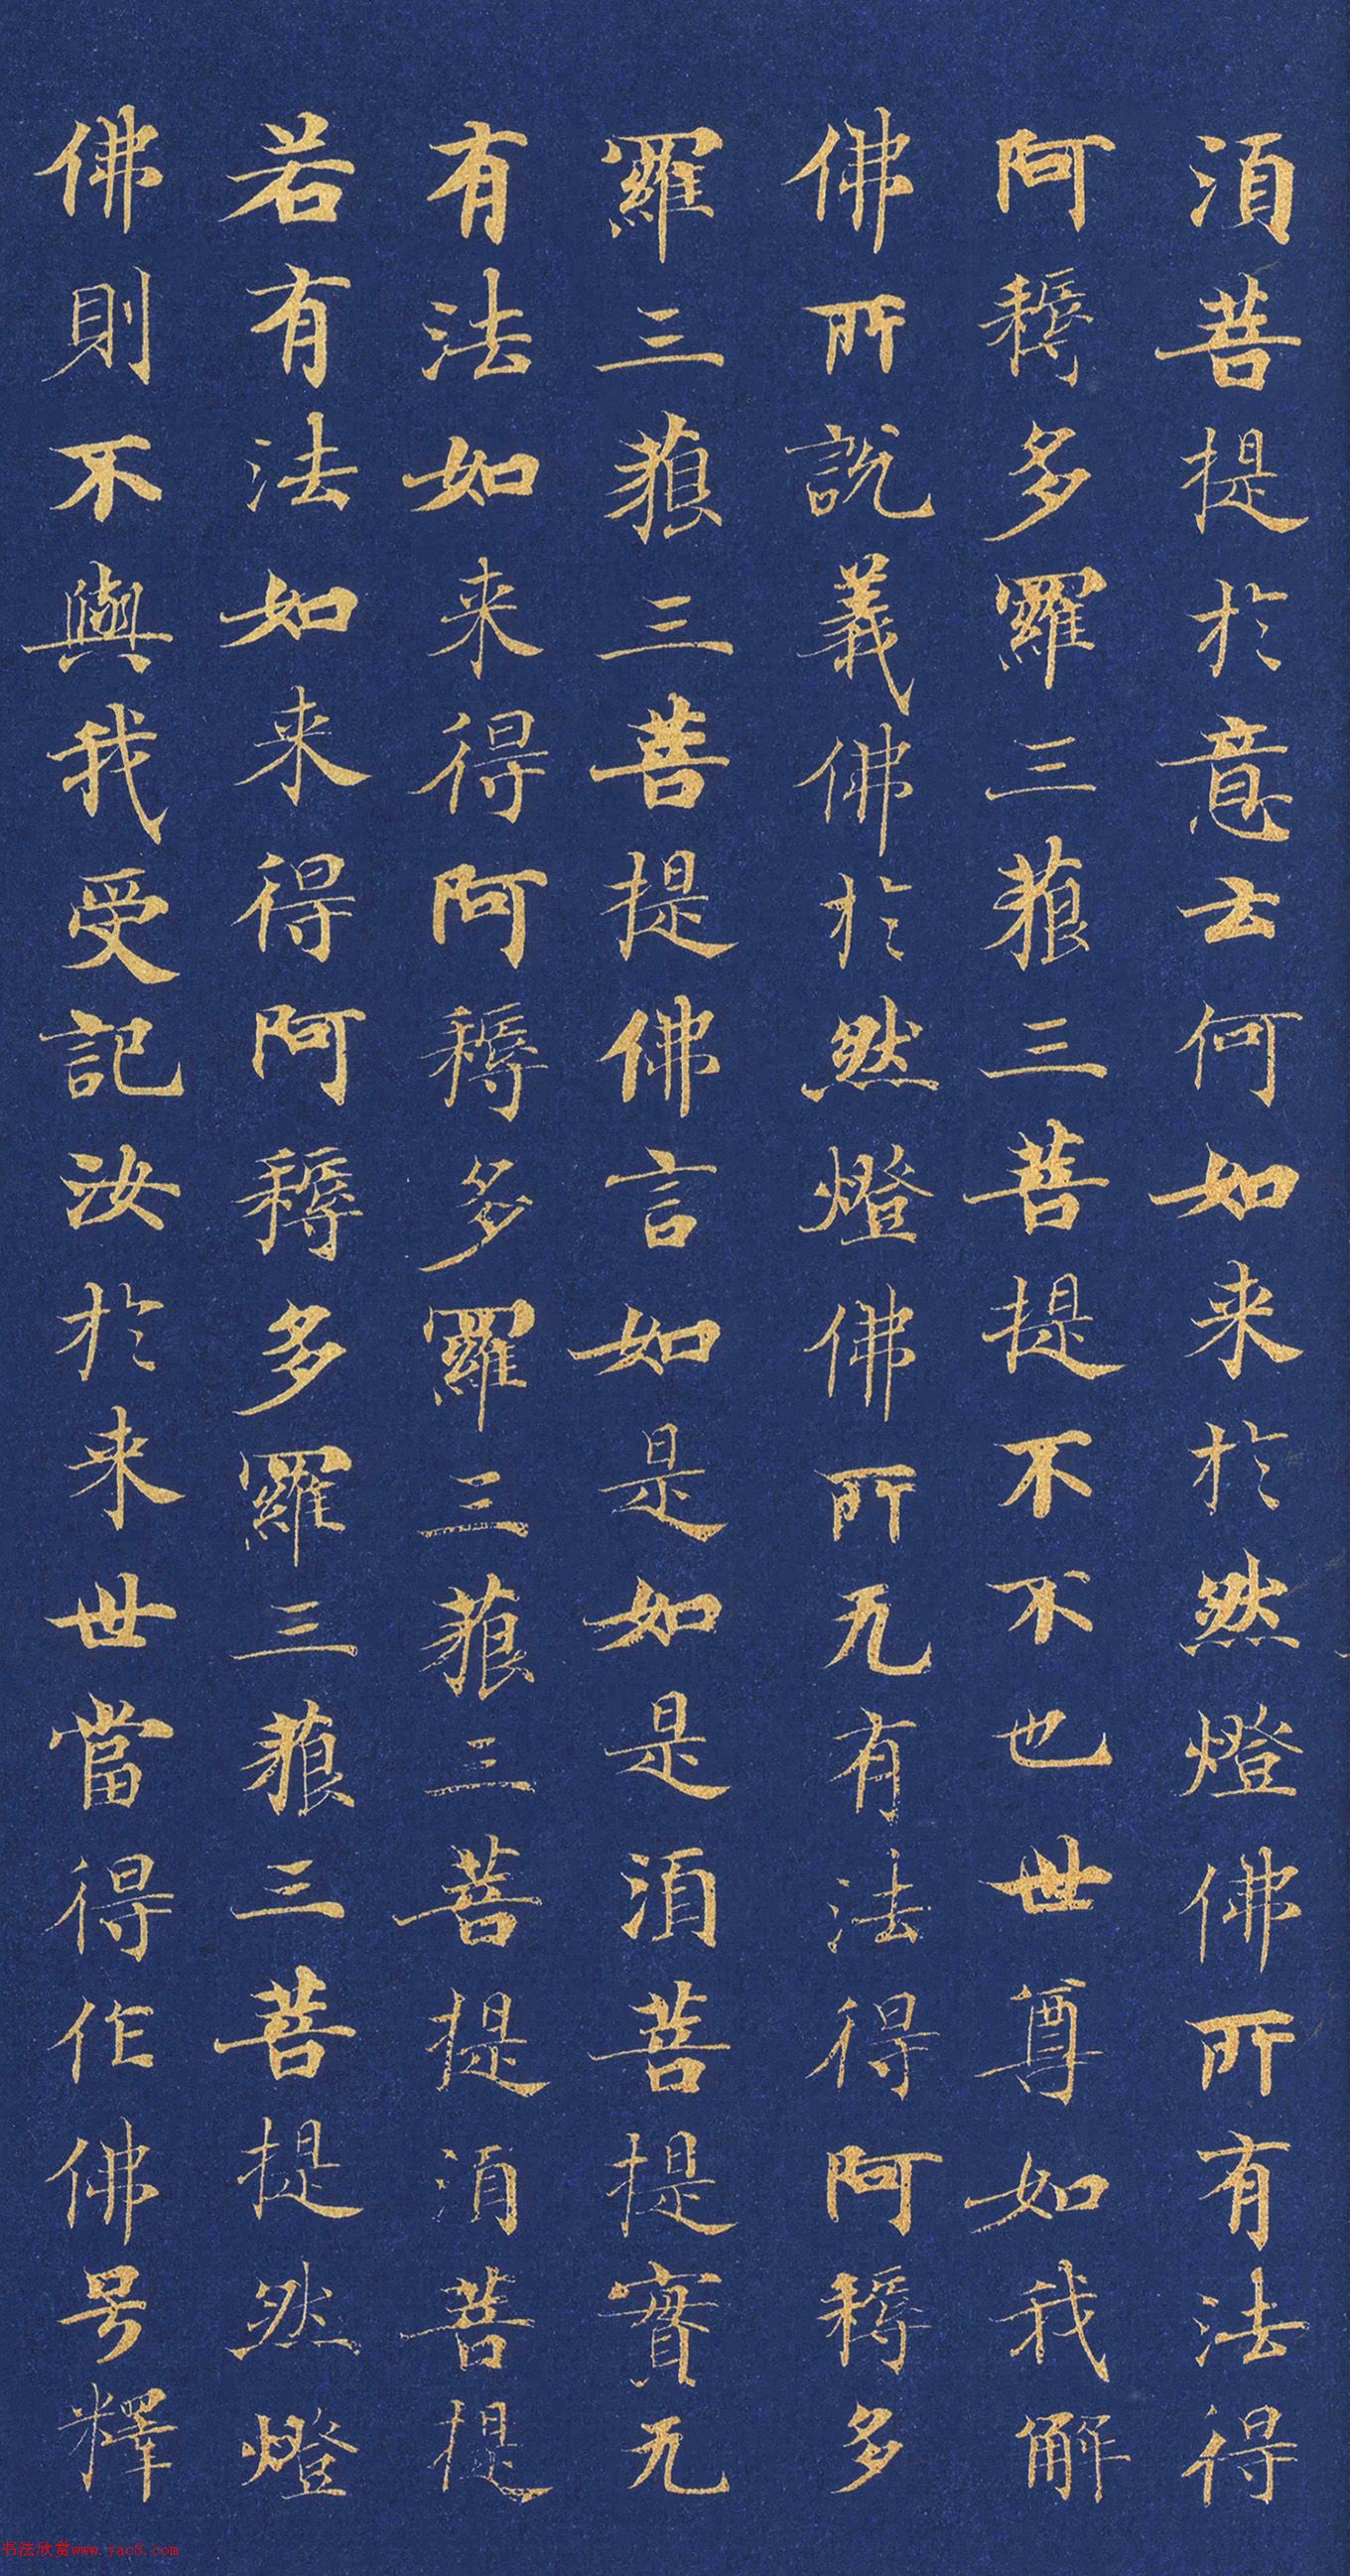 須菩提於意云何如来於然燈佛所有法得
阿耨多羅三藐三菩提不不也世尊如我解
佛所說義佛於然燈佛所无有法得阿耨多
羅三藐三菩提佛言如是如是須菩提實无
有法如来得阿耨多羅三藐三菩提須菩提
若有法如来得阿耨多羅三藐三菩提然燈
佛則不與我受記汝於来世當得作佛号釋
书法欣赏www.yac8.com